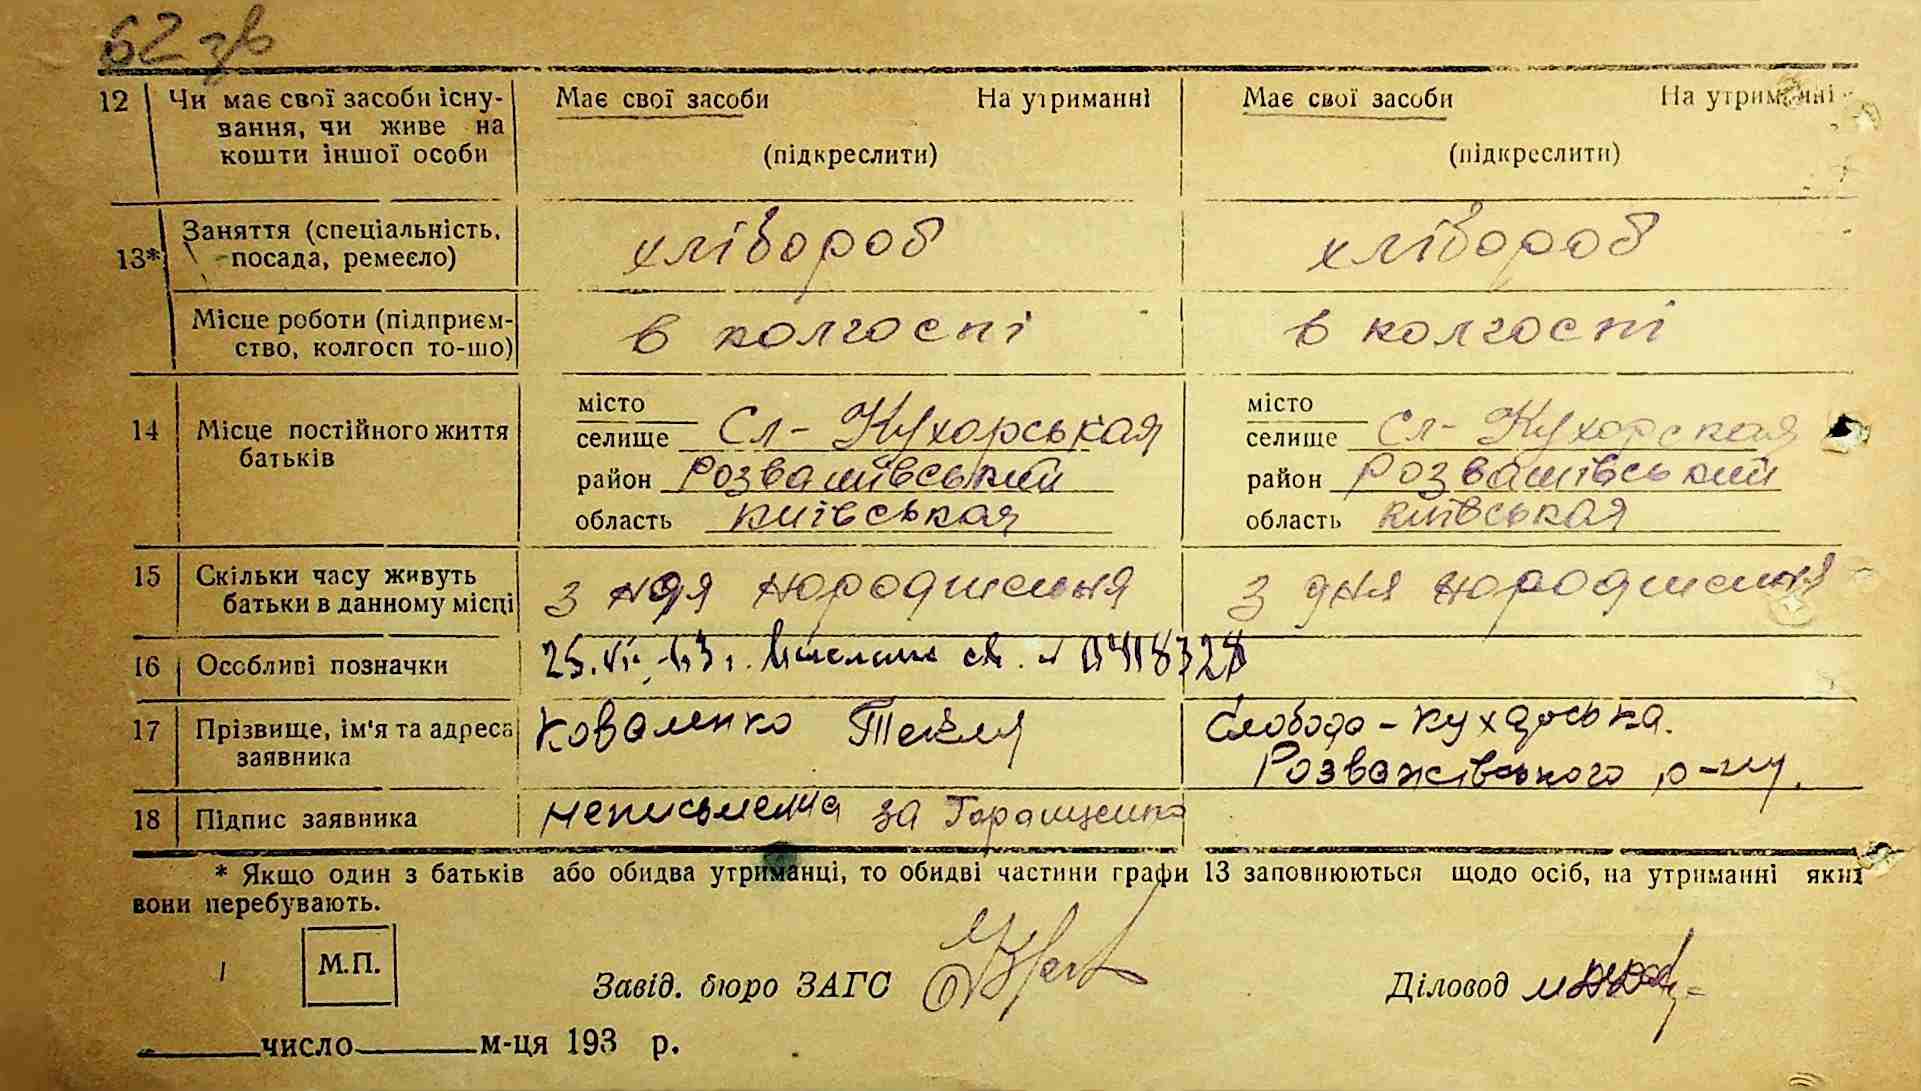 62 зв
12 Чи має свої засоби існу-
вання, чи живе на
кошти іншої особи
Має свої засоби На утриманні
(підкреслити)
Має свої засоби На утриманні
(підкреслити)
13* Заняття (спеціальність,
посада, ремесло)
хлібороб
хлібороб
Місце роботи (підприєм-
ство, колгосп то-шо)
в колгоспі
в колгоспі
14 Місце постійного життя
батьків
місто
селище Сл-Кухорськая
район Розвашівський
область київськая
місто
селище Сл-Кухорская
район Розвашівський
область київськая
15 Скільки часу живуть
батьки в данному місці
з ндя народження
з дня народження
16 Особливі позначки
25. VI. 63 г. св. 0418328
17 Прізвище, ім'я та адреса
заявника
Коваленко Текля
Слобода-Кухарська.
Розважівського р-ну.
18 Підпис заявника
неписьменна за Горащенко
* Якщо один з батьків або обидва утриманці, то обидві частини графи 13 заповнюються щодо осіб, на утриманні яких
вони перебувають.
М.П.
Завід. бюро ЗАГС
Діловод
число м-ця 193 р.